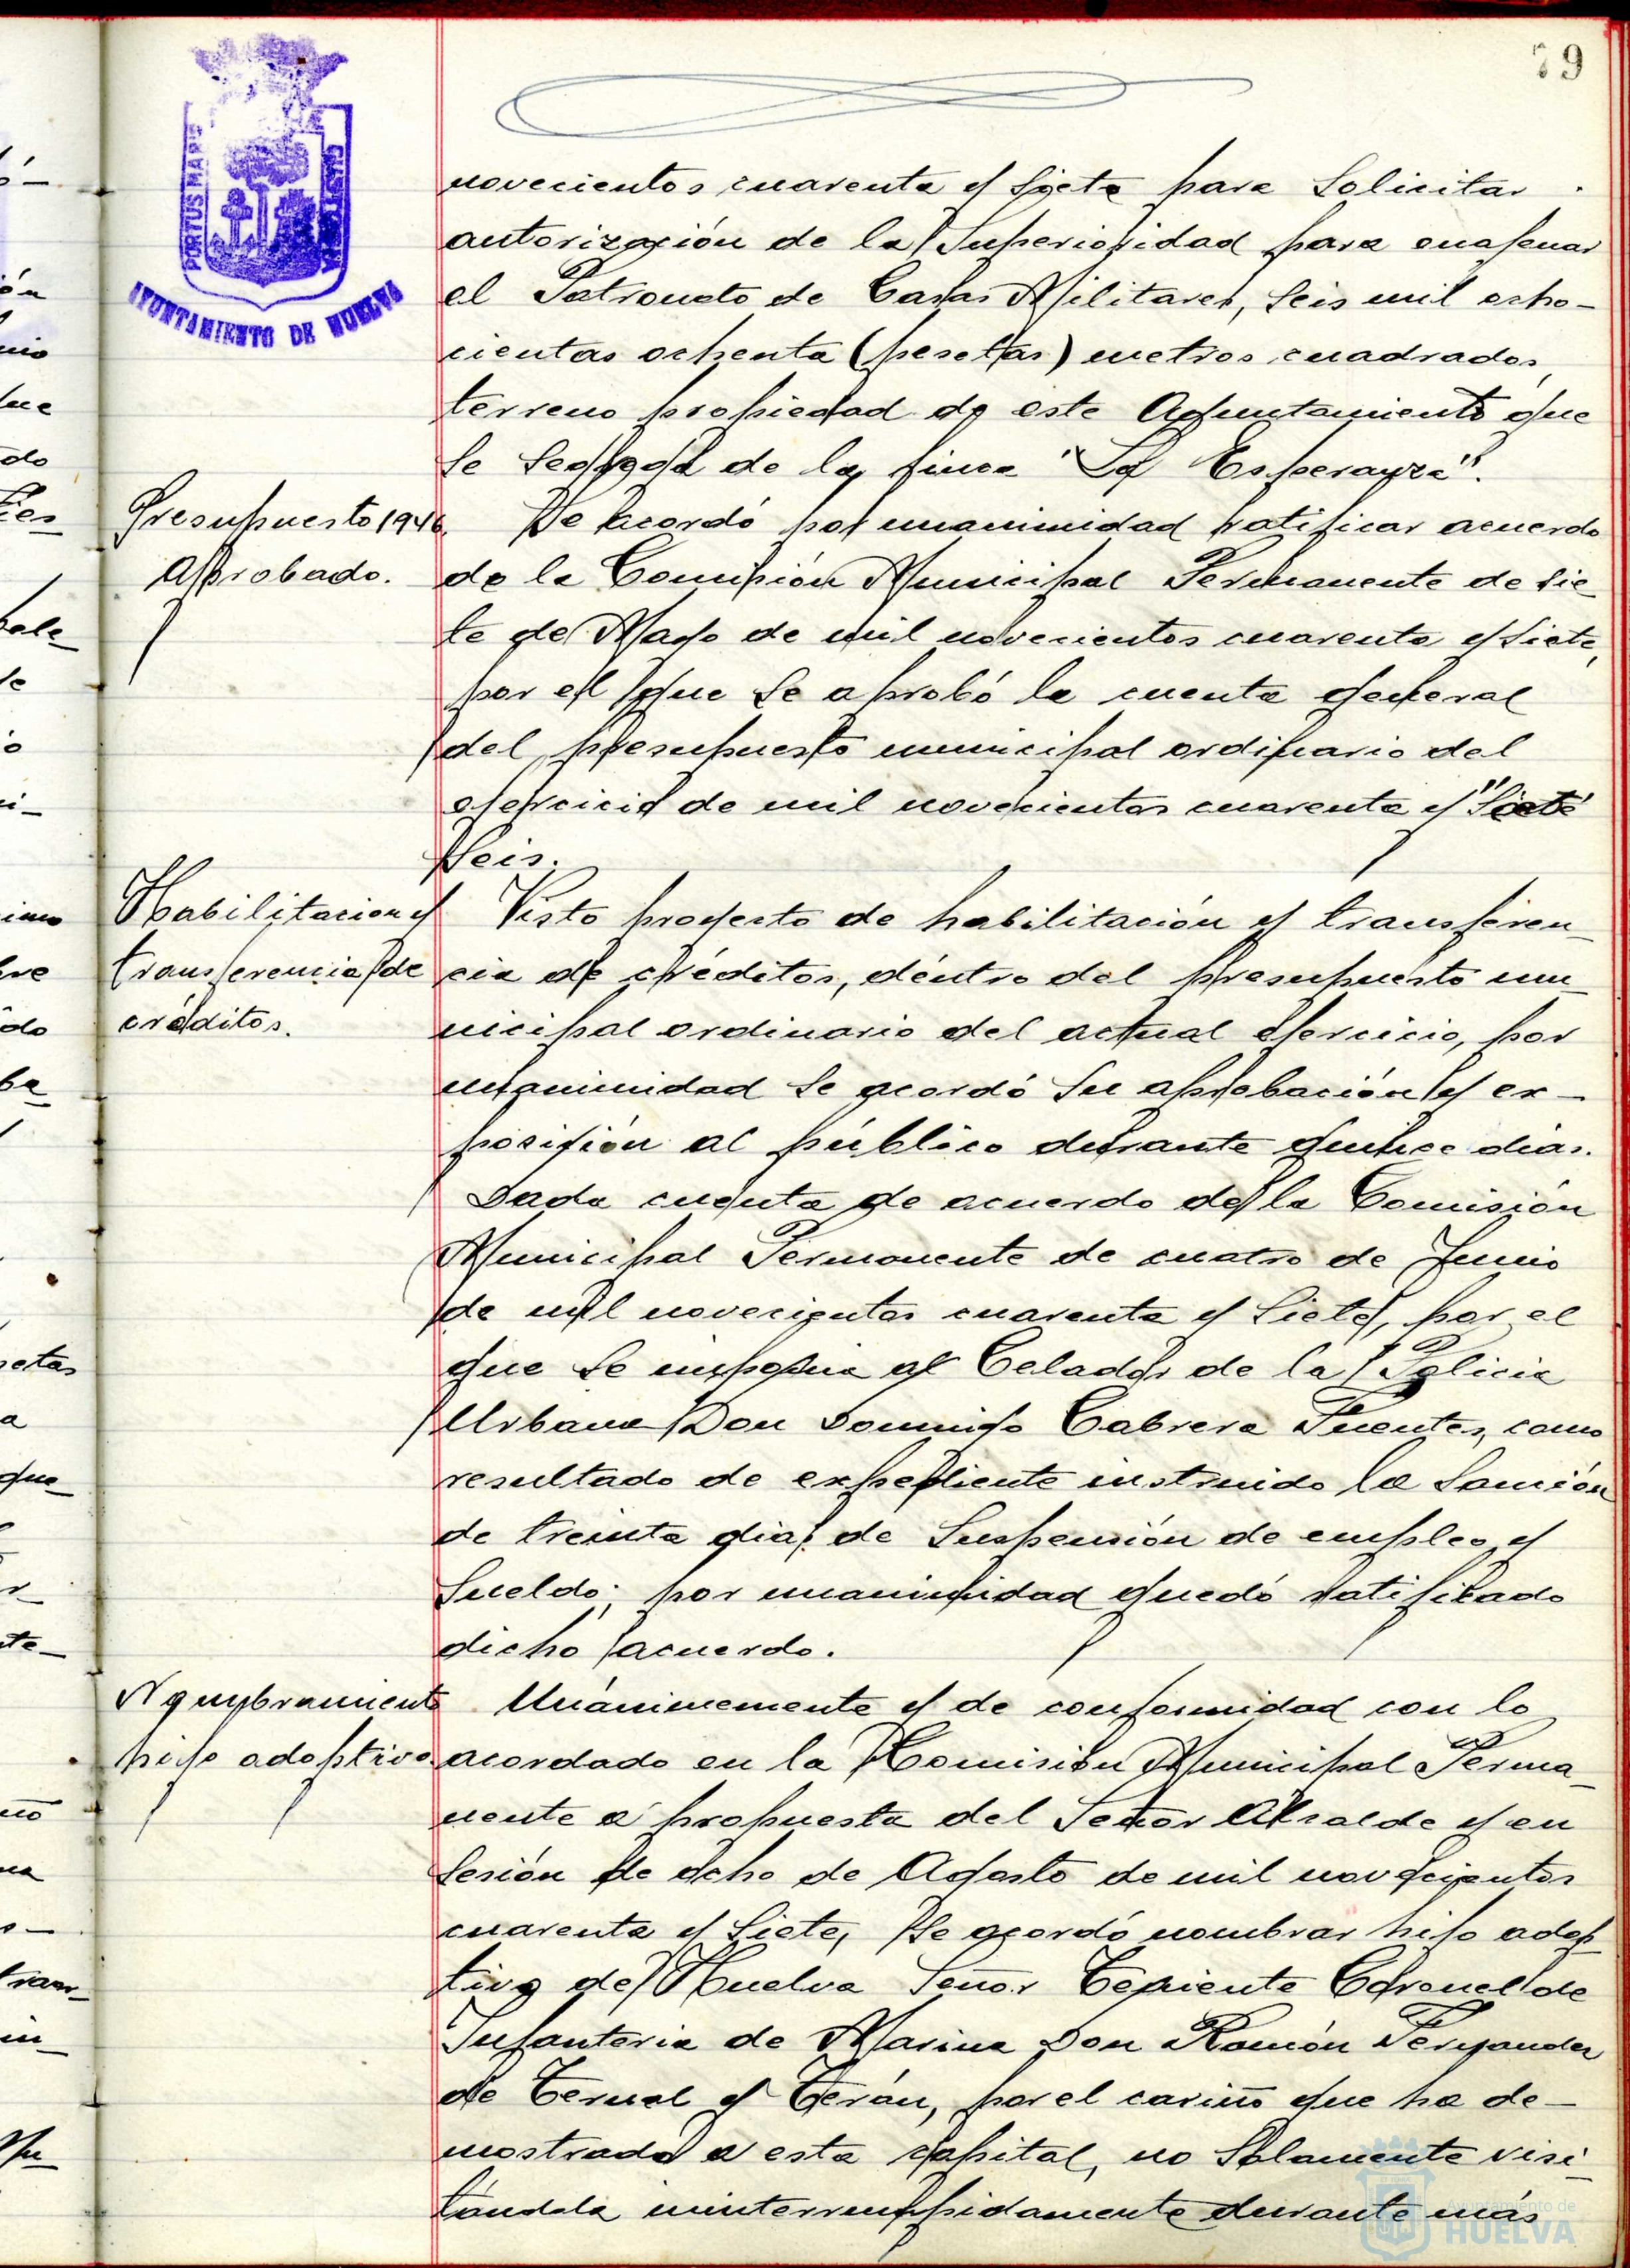 79
PORTUS MARIS
AYUNTAMIENTO DE HUELVA
novecientos cuarenta y siete para solicitar
autorización de la Superioridad para enajenar
el Patronato de Casas Militares, seis mil ocho-
cientas ochenta (pesetas) metros cuadrados,
terreno propiedad de este Ayuntamiento que
se segrega de la finca "La Esperanza".
Presupuesto 1946.
Aprobado.
Se acordó por unanimidad ratificar acuerdo
de la Comisión Municipal Permanente de sie-
te de Mayo de mil novecientos cuarenta y siete,
por el que se aprobó la cuenta general
del presupuesto municipal ordinario del
ejercicio de mil novecientos cuarenta y "siete"
seis.
Habilitacion y
transferencia de
créditos.
Visto proyecto de habilitación y transferen-
cia de créditos, dentro del presupuesto mu-
nicipal ordinario del actual ejercicio, por
unanimidad se acordó su aprobación y ex-
posición al público durante quince dias.
Dada cuenta de acuerdo de la Comisión
Municipal Permanente de cuatro de Junio
de mil novecientos cuarenta y siete, por el
que se imponia al Celador de la Policia
Urbana Don Domingo Cabrera Fuentes, como
resultado de expediente instruido la sanción
de treinta dias de suspensión de empleo y
sueldo; por unanimidad quedó ratificado
dicho acuerdo.
Nombramiento
hijo adoptivo.
Unánimemente y de conformidad con lo
acordado en la Comisión Municipal Perma-
nente a propuesta del Señor Alcalde y en
sesión de ocho de Agosto de mil novecientos
cuarenta y siete, se acordó nombrar hijo adop-
tivo de Huelva Señor Teniente Coronel de
Infanteria de Marina Don Ramón Fernandez
de Teruel y Terán, por el cariño que ha de-
mostrado a esta capital, no solamente visi-
tándola ininterrumpidamente durante más
Ayuntamiento de
HUELVA